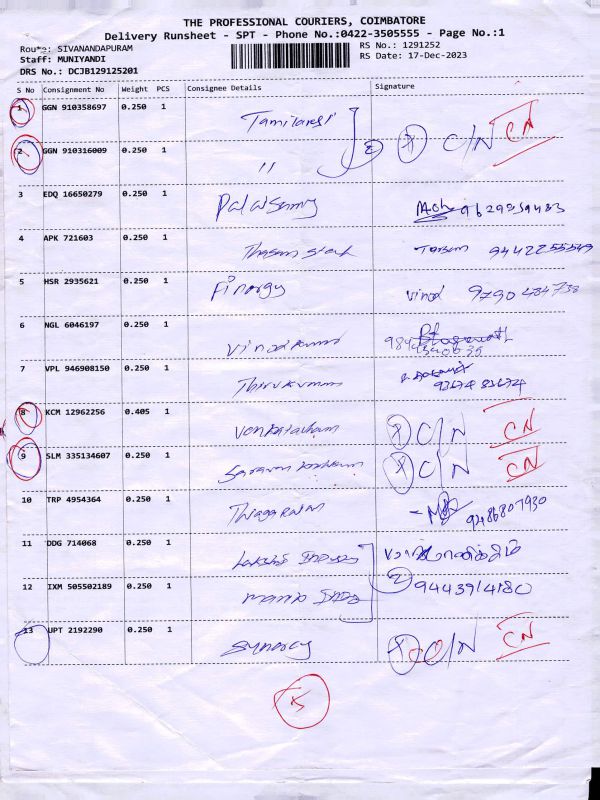 THE PROFESSIONAL COURIERS, COIMBATORE
Delivery Runsheet - SPT - Phone No.:0422-3505555 - Page No.:1
Route: SIVANANDAPURAM RS No.: 1291252
Staff: MUNIYANDI RS Date: 17-Dec-2023
DRS No.: DCJB129125201
S No Consignment No Weight PCS Consignee Details Signature
1 GGN 910358697 0.250 1
2 GGN 910316009 0.250 1 " 2 X C/N CN
3 EDQ 16650279 0.250 1
4 APK 721603 0.250 1
5 HSR 2935621 0.250 1 Finorgy Vinod
6 NGL 6046197 0.250 1 Vinodkumar
7 VPL 946908150 0.250 1 Thirukumar
8 KCM 12962256 0.405 1 Venkatacham X C/N CN
9 SLM 335134607 0.250 1 X C/N CN
10 TRP 4954364 0.250 1 Thiagarajan 9486807930
11 DDG 714068 0.250 1
12 IXM 505502189 0.250 1 2 9443914180
13 UPT 2192290 0.250 1 Synergy X C/N CN
5